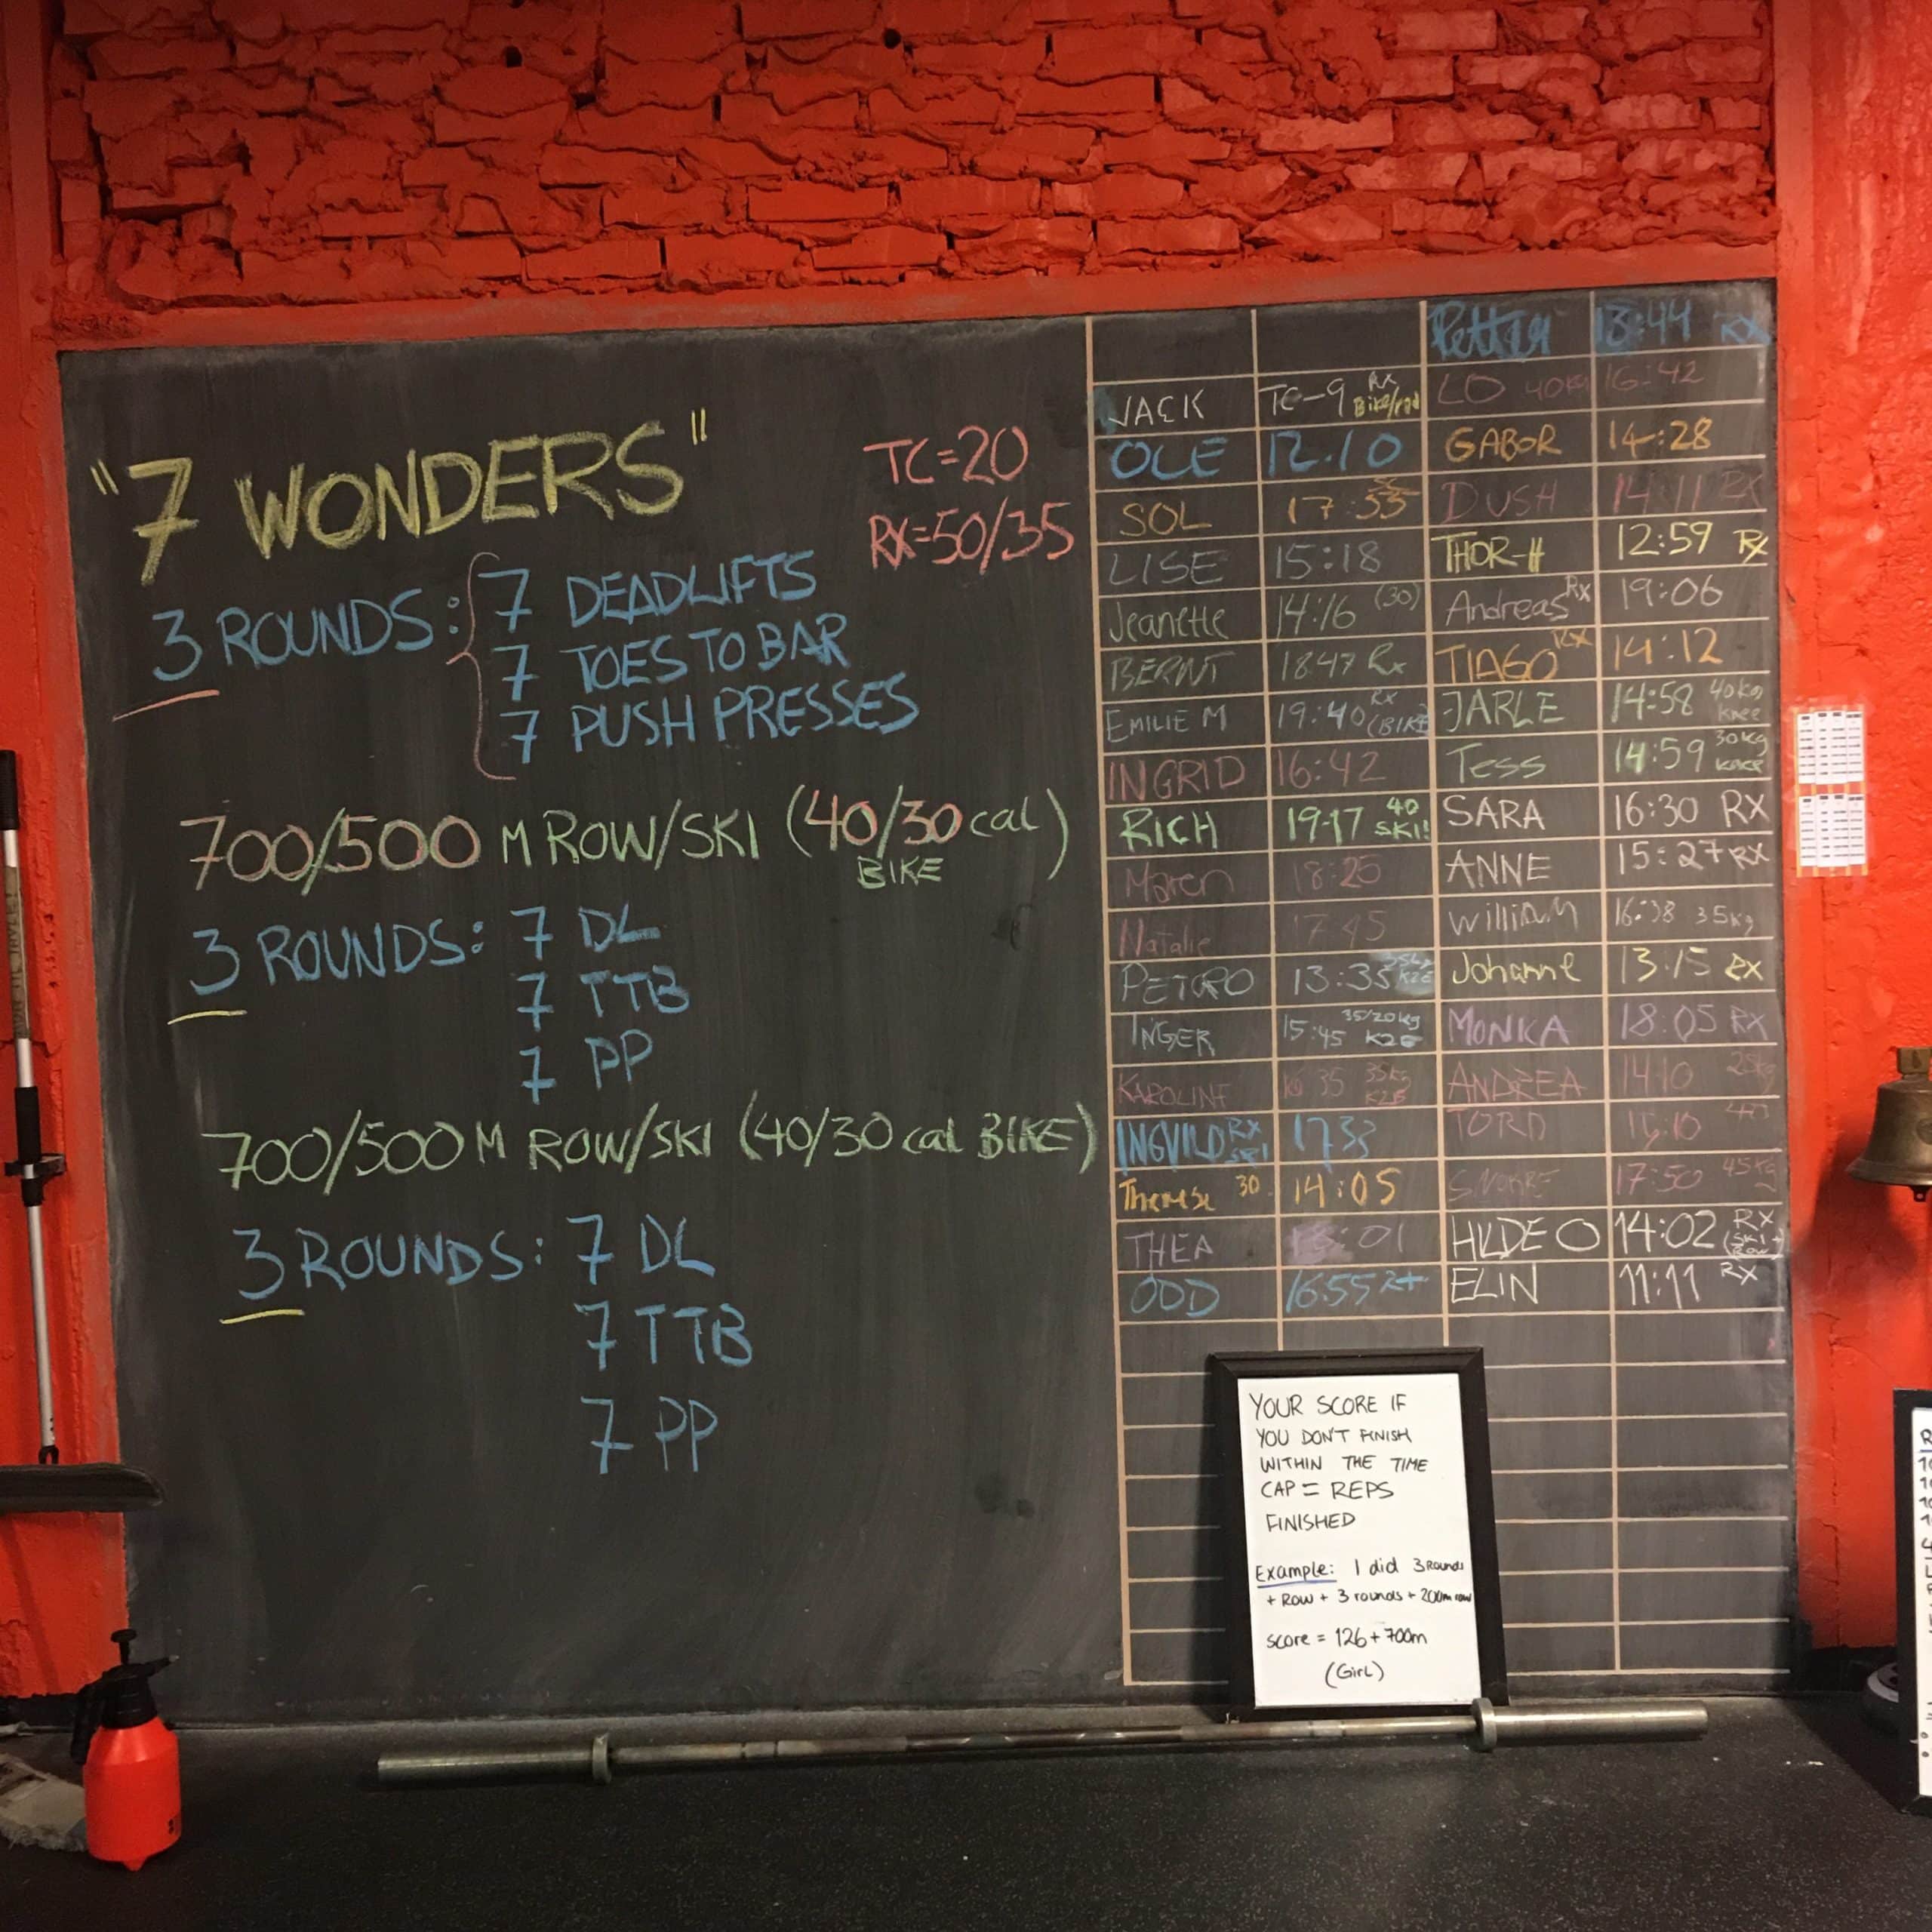 "7 WONDERS"
TC=20
RX=50/35
3 ROUNDS: 7 DEADLIFTS
7 TOES TO BAR
7 PUSH PRESSES
700/500 M ROW/SKI (40/30 cal)
BIKE
3 ROUNDS: 7 DL
7 TTB
7 PP
700/500 M ROW/SKI (40/30 cal BIKE)
3 ROUNDS: 7 DL
7 TTB
7 PP
JACK TC-9 Rx
OLE 12.10
SOL 17:55
LISE 15:18
Jeanette 14:16 (30)
BERNT 18:47 Rx
EMILIE M 19:40 RX (BIKE)
INGRID 16:42
RICH 19:17 40 SKI!
Maren 18:25
Natalie 17:45
PETGRO 13:35 K2E
INGER 15:45 35/20kg K2E
KAROLINE 16 35 35kg K2E
INGVILD RX SKI 17 33
Therese 30 14:05
THEA :01
ODD 16:55 RX
Petter 13:44 RX
LO 40kg 16:42
GABOR 14:28
DUSH 14:11 RX
THOR-H 12:59 Rx
Andreas Rx 19:06
TIAGO RX 14:12
JARLE 14:58 40kg knee
Tess 14:59 30kg knee
SARA 16:30 RX
ANNE 15:27 RX
William 16:38 35kg
Johanne 13:15 RX
MONKA 18:05 RX
ANDREA 14:10 25kg
TORD
17:50 45kg
HILDE O 14:02 RX (SKI + ROW)
ELIN 11:11 RX
YOUR SCORE IF
YOU DON'T FINISH
WITHIN THE TIME
CAP = REPS
FINISHED
Example: I did 3 Rounds
+ Row + 3 rounds + 200m row
score = 126 + 700m
(Girl)